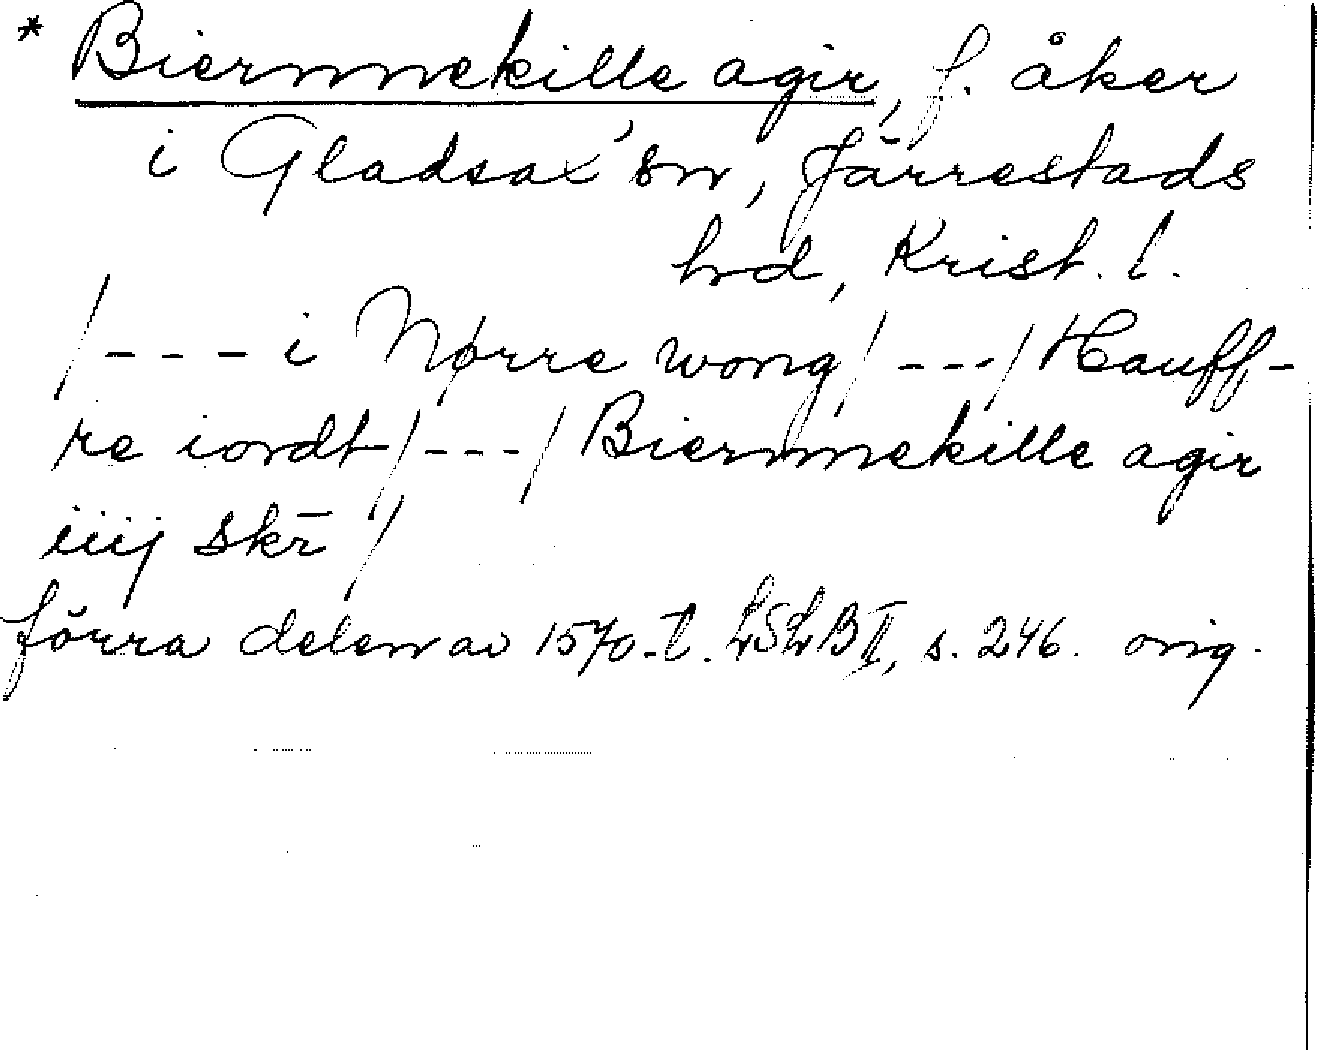 * Biernnekille agir, f. åker
i Gladsax' sn, Järrestads
hd, Krist. l.
/--- i Nørre wong/ ---/ Hauff-
re iordt/---/ Biernnekille agir
iiij skr̄ /
förra delen av 1570-t. LSLB II, s. 246. orig.